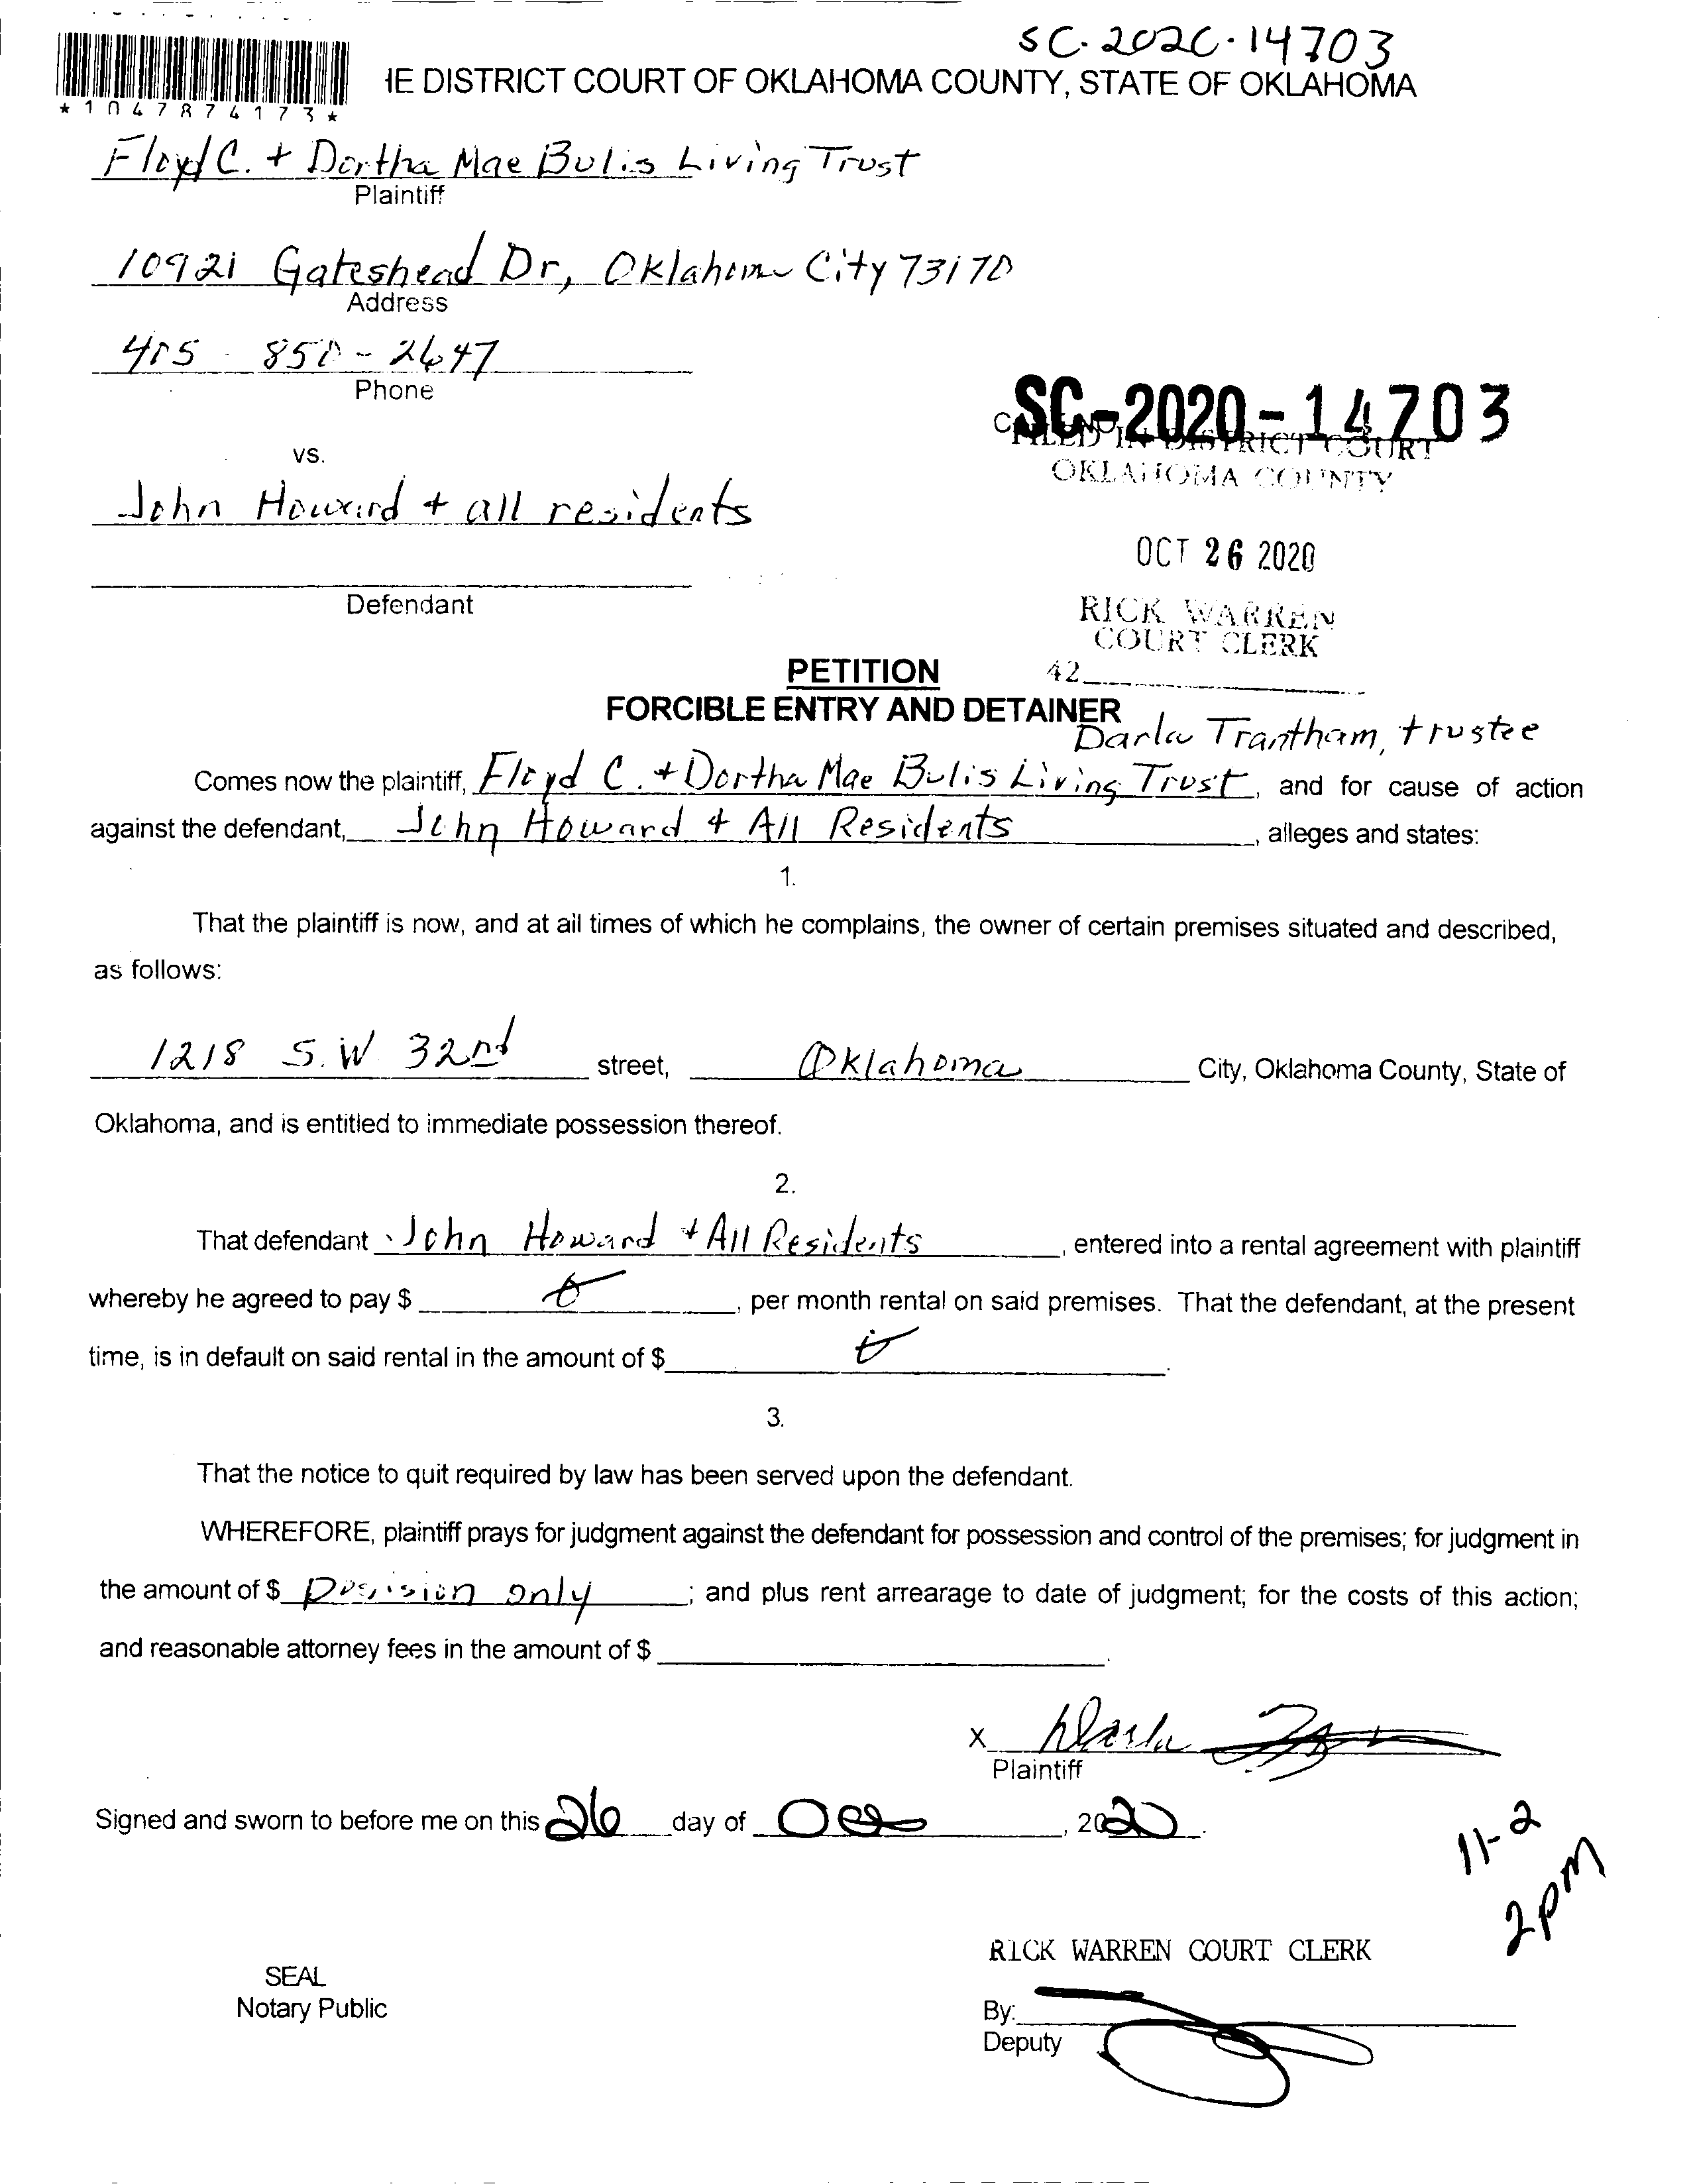 SC-2020-14703
*1047874173*
IE DISTRICT COURT OF OKLAHOMA COUNTY, STATE OF OKLAHOMA
Floyd C. + Dortha Mae Bulis Living Trust
Plaintiff
10921 Gateshead Dr, Oklahoma City 73170
Address
405-850-2647
Phone
SC-2020-14703
FILED IN DISTRICT COURT
OKLAHOMA COUNTY
vs.
John Howard + all residents
OCT 26 2020
Defendant
RICK WARREN
COURT CLERK
42
PETITION
FORCIBLE ENTRY AND DETAINER
Darla Trantham, trustee
Comes now the plaintiff, Floyd C. + Dortha Mae Bulis Living Trust, and for cause of action
against the defendant, John Howard + All Residents, alleges and states:
1.
That the plaintiff is now, and at all times of which he complains, the owner of certain premises situated and described,
as follows:
1218 S.W 32nd street, Oklahoma City, Oklahoma County, State of
Oklahoma, and is entitled to immediate possession thereof.
2.
That defendant John Howard + All Residents, entered into a rental agreement with plaintiff
whereby he agreed to pay $ , per month rental on said premises. That the defendant, at the present
time, is in default on said rental in the amount of $ .
3.
That the notice to quit required by law has been served upon the defendant.
WHEREFORE, plaintiff prays for judgment against the defendant for possession and control of the premises; for judgment in
the amount of $ only ; and plus rent arrearage to date of judgment; for the costs of this action;
and reasonable attorney fees in the amount of $ .
X Darla
Plaintiff
Signed and sworn to before me on this 26 day of Oct, 2020.
11-2
2pm
RICK WARREN COURT CLERK
SEAL
Notary Public
By:
Deputy